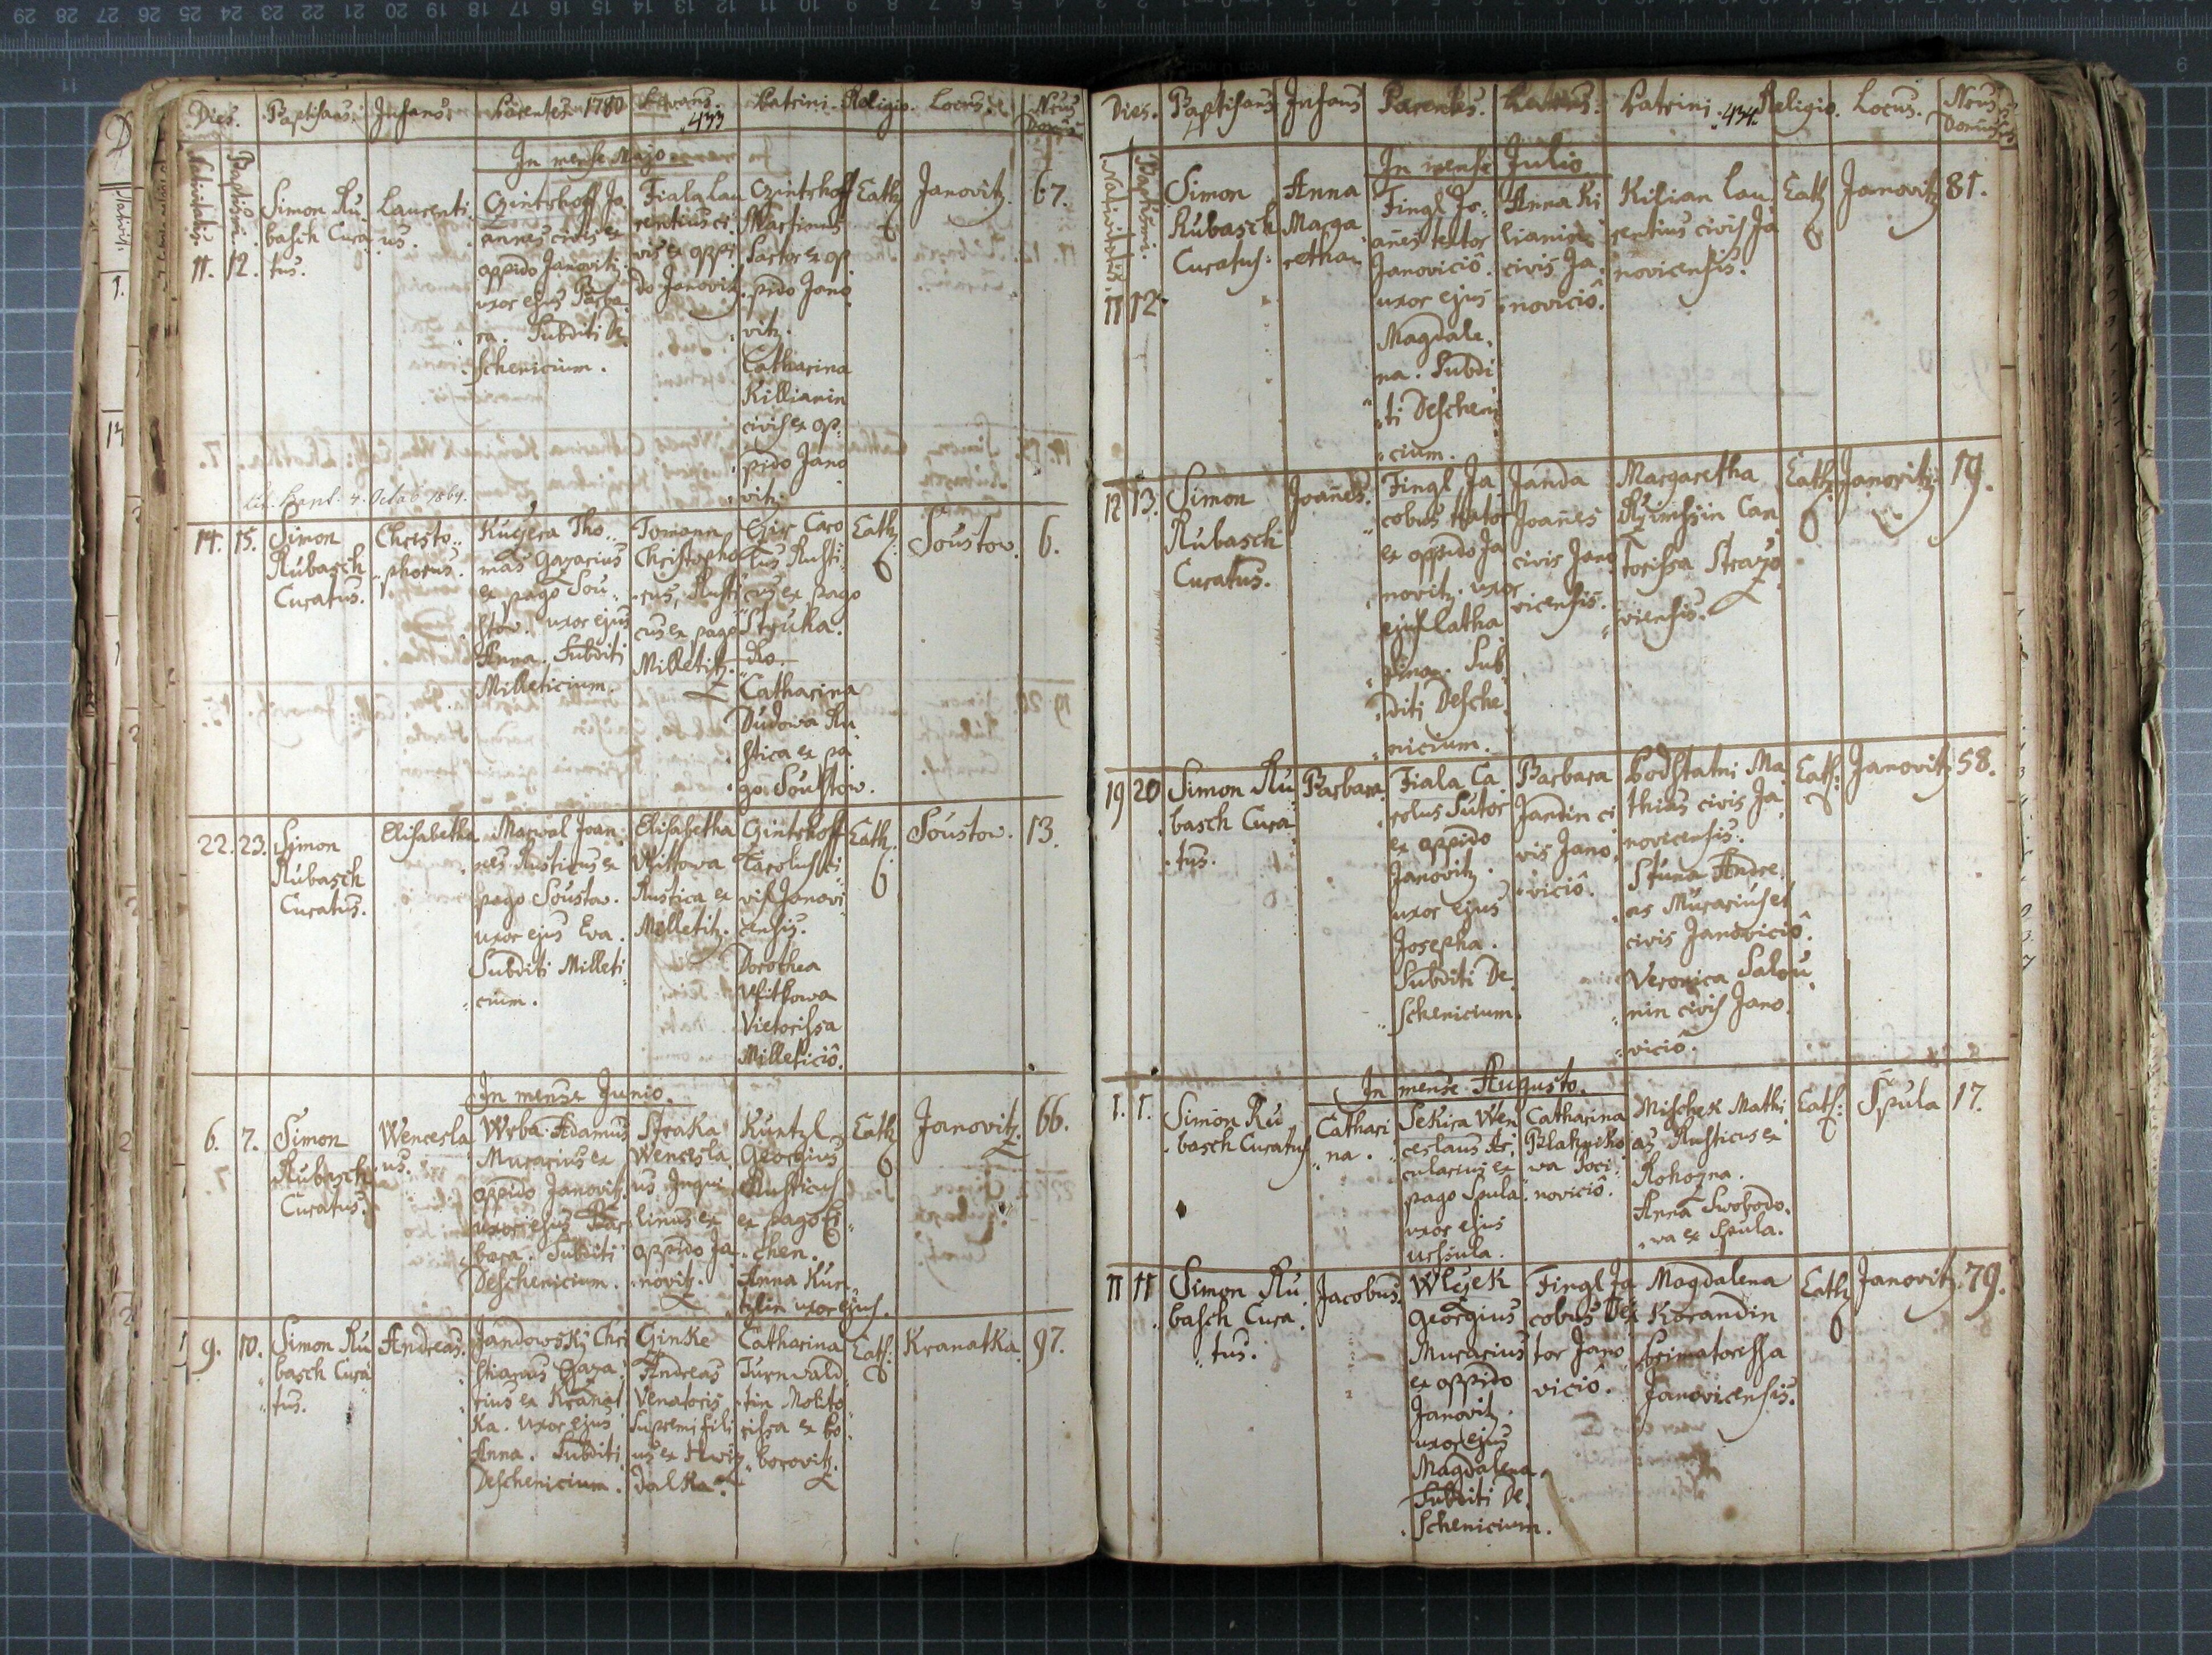 Dies. Baptisans. Infans. Parentes. 1780 Levans. Patrini. Religio. Locus. Nrus
433 Domus
Nativitatis. Baptismi.
In mense Majo
11. 12.
Simon Ru
basch Cura
tus.
Laurenti
us.
Gzintrhoff Jo
annes civis ex
oppido Janovitz.
uxor ejus Barba
ra. Subditi De
schenicium.
Fiala Lau
rentius ci
vis ex oppi
do Janovitz.
Gzintrhoff
Martinus
Sartor ex op
pido Jano
vitz.
Catharina
Killianin
civis ex op
pido Jano
vitz.
Cath
Janovitz.
67.
14. 15.
Simon
Rubasch
Curatus.
Christo
phorus.
Kučera Tho
mas Gazarius
ex pago Sou
stow. uxor ejus
Anna. Subditi
Milleticium.
Tomann
Christopho
rus, Rusti
cus ex pago
Milletitz.
Caro
lus Rusti
cus ex pago
Struha.
Catharina
Dudowa Ru
stica ex pa
go Soustow.
Cath
Soustow.
6.
22. 23.
Simon
Rubasch
Curatus.
Elisabetha
Marwal Joan
nes Rusticus ex
pago Soustow.
uxor ejus Eva.
Subditi Milleti
cium.
Elisabetha
Witkowa
Rustica ex
Milletitz.
Gintrhoff
Carolus ci
vis Janovi
censis.
Dorothea
Witkowa
Vietorissa
Milleticiô.
Cath.
Soustow.
13.
In mense Junio.
6. 7.
Simon
Rubasch
Curatus.
Wencesla
us.
Wrba Adamus
Murarius ex
oppido Janovitz.
uxor ejus Bar
bara. Subditi
Deschenicium.
Straka
Wencesla
us Inqui
linus ex
oppido Ja
novitz.
Kuntzl
Georgius
Rusticus
ex pago Ci
chen.
Anna Kun
tzlin uxor ejus.
Cath
Janovitz.
66.
9. 10.
Simon Ru
basch Cura
tus.
Andreas.
Jandowsky Chri
stianus Gaza
rius ex Kranat
ka. uxor ejus
Anna. Subditi
Deschenicium.
Ginke
Andreas
Venatoris
Supremi fili
us ex Hwiz
dalka.
Catharina
Turnwald
tin Molito
rissa ex Bo
borovitz.
Cath:
Kranatka.
97.
Dies. Baptisans Infans Parentes. Levans. Patrini. 434. Religio. Locus. Nrus
Domus
Nativitatis Baptismi.
In mense Julio.
11 12.
Simon
Rubasch
Curatus.
Anna
Marga
retha.
Fingl Jo
anes textor
Janoviciô.
uxor ejus
Magdale
na. Subdi
ti Descheni
cium.
Anna Ki
lianin
civis Ja
noviciô.
Kilian Lau
rentius civis Ja
novicensis.
Cath
Janovitz
81.
12 13.
Simon
Rubasch
Curatus.
Joañes.
Fingl Ja
cobus textor
ex oppido Ja
novitz. uxor
ejus Catha
rina. Sub
diti Desche
nicium.
Janda
Joañes
civis Jano
vicensis.
Margaretha
Can
torissa Strazo
viensis.
Cath
Janovitz.
19.
19 20
Simon Ru
basch Cura
tus.
Barbara.
Fiala Ca
rolus Sutor
ex oppido
Janovitz.
uxor ejus
Josepha.
Subditi De
schenicium.
Barbara
Jandin ci
vis Jano
viciô.
Podstatni Ma
thias civis Ja
novicensis.
Stuna Andre
as Murarius et
civis Janoviciô.
Veronica Salou
nin civis Jano
viciô.
Cath:
Janovitz
58.
In mense Augusto.
1. 1.
Simon Ru
basch Curatus
Cathari
na.
Sekira Wen
ceslaus Ar
cularius ex
pago Spula.
uxor ejus
Ursula.
Catharina
wa Poci
noviciô.
Mischek Mathi
as Rusticus ex
Rohozna.
Anna Swobodo
wa ex Spula.
Cath:
Spula
17.
11 11
Simon Ru
basch Cura
tus.
Jacobus.
Wlcjek
Georgius
Murarius
ex oppido
Janovitz.
uxor ejus
Magdalena
Subditi De
schenicium.
Fingl Ja
cobus Tex
tor Jano
viciô.
Magdalena
Korandin
Primatorissa
Janovicensis.
Cath
Janovitz.
79.